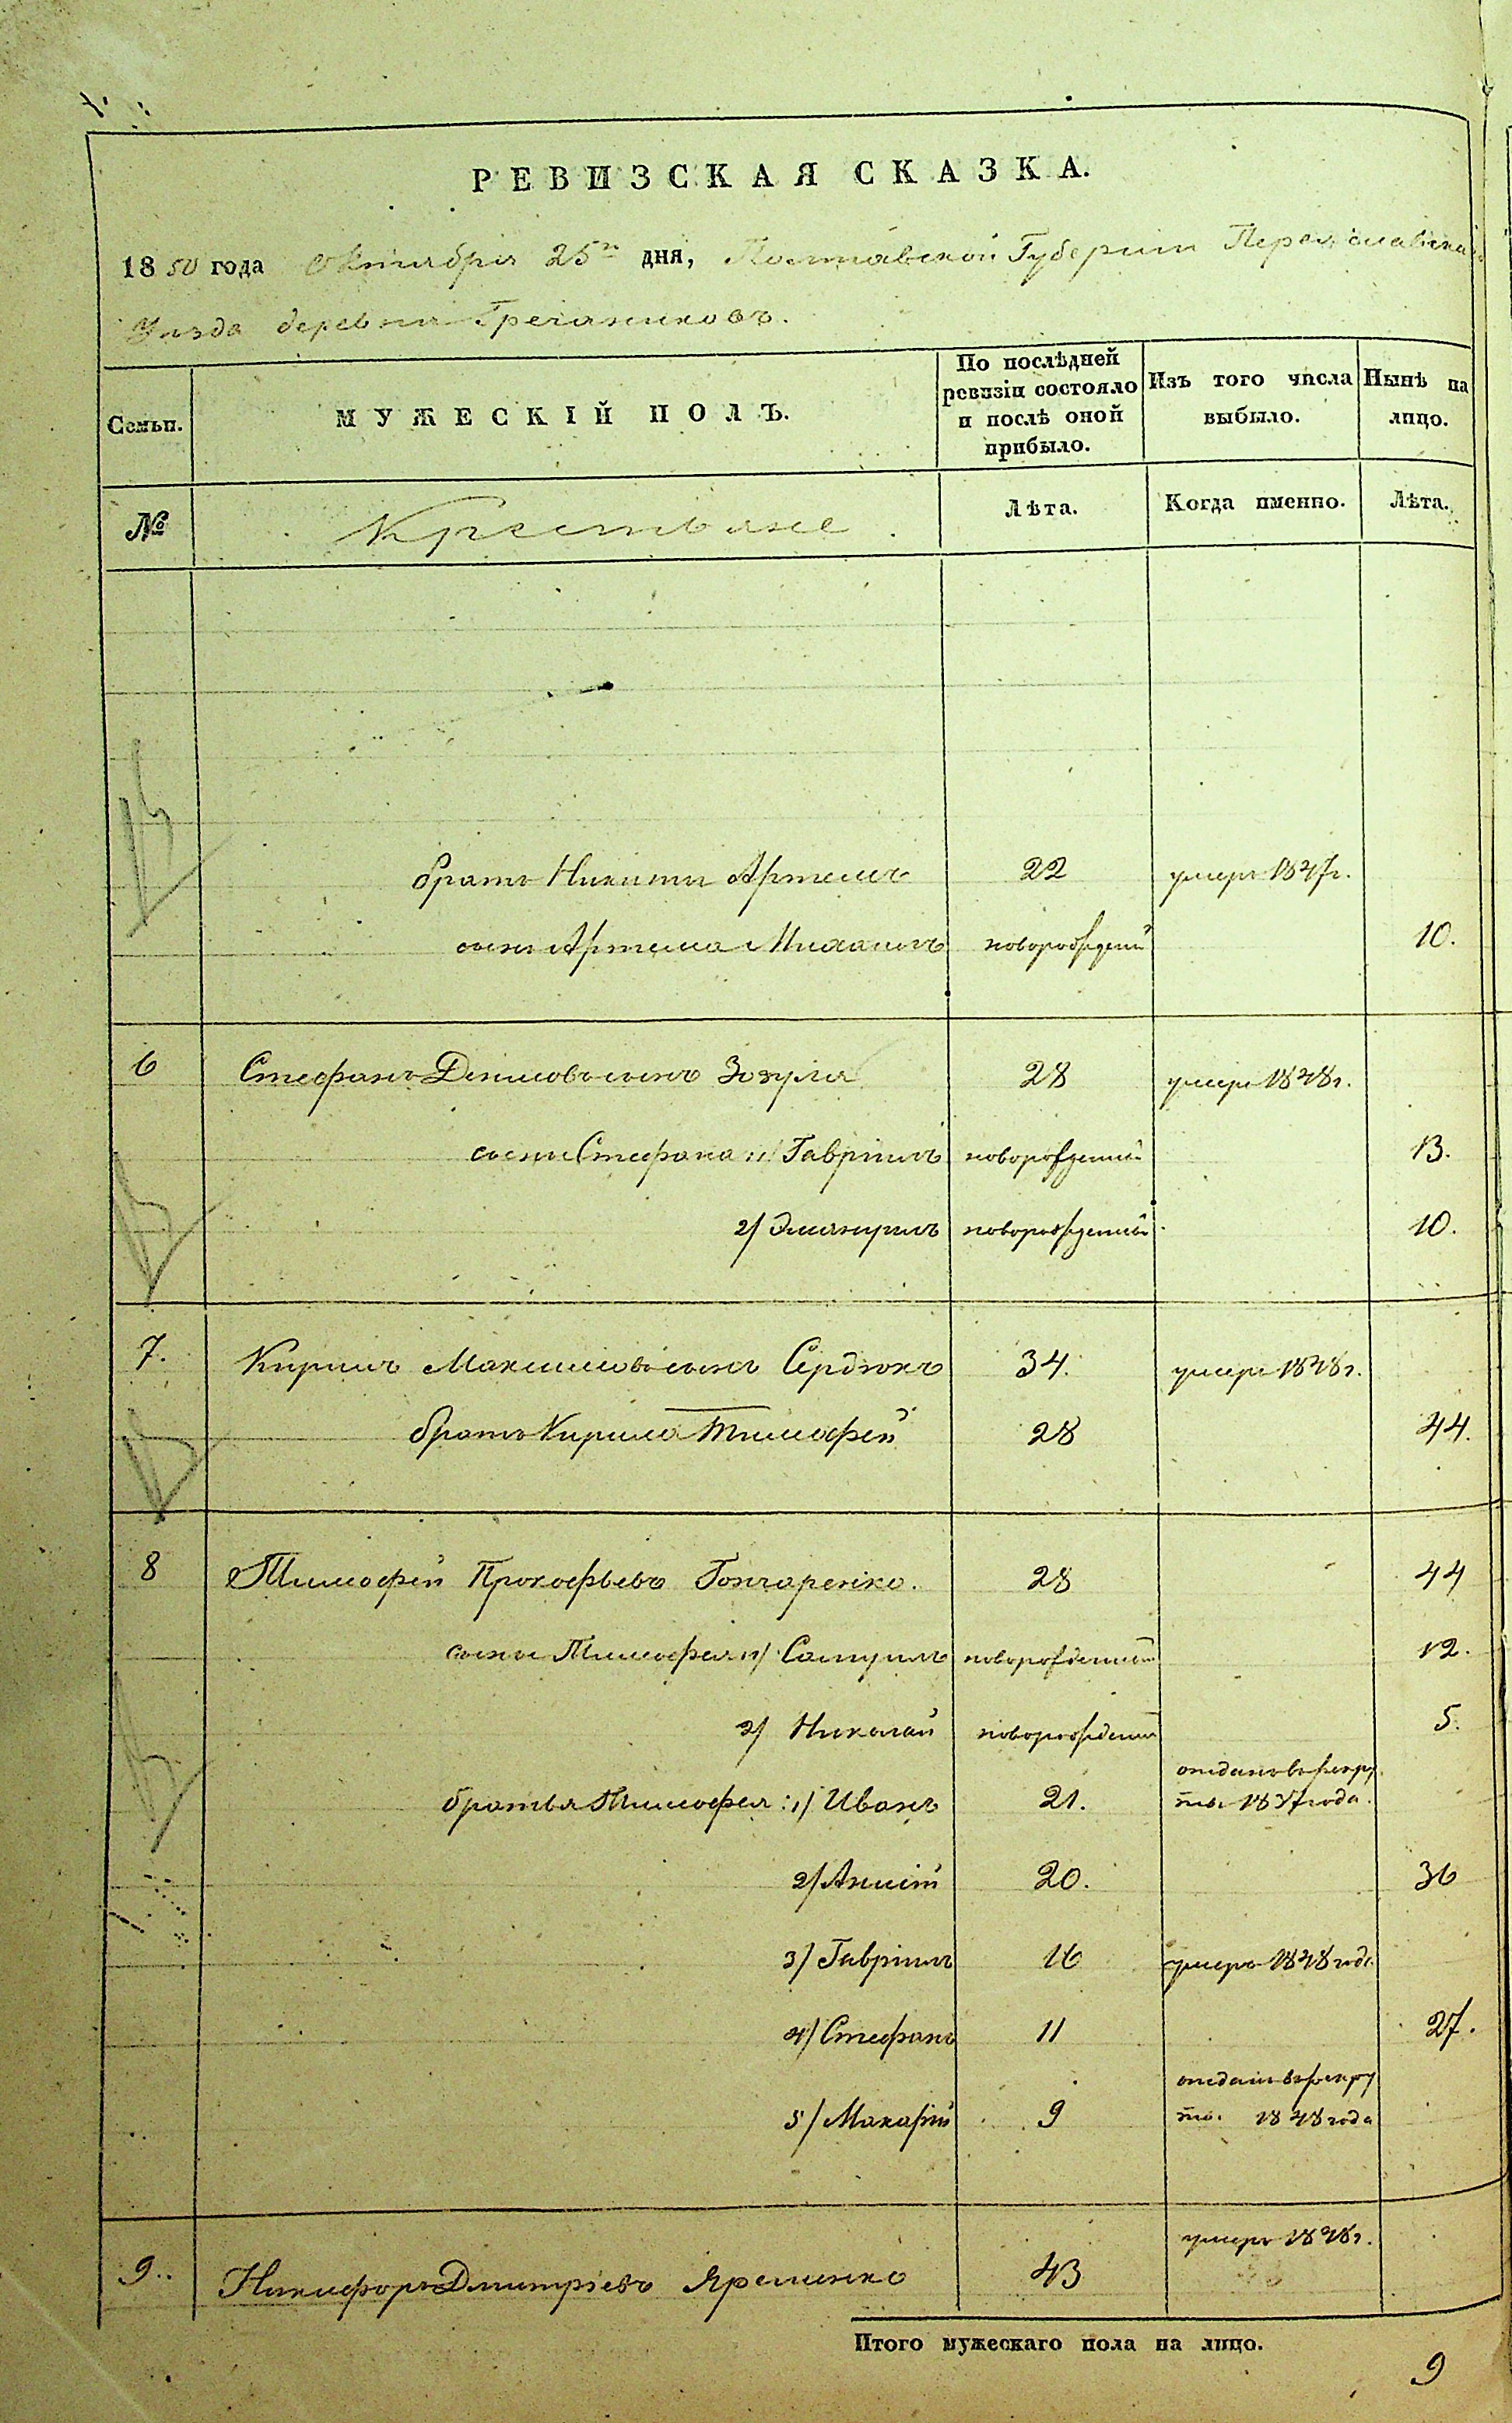 РЕВИЗСКАЯ СКАЗКА.
1850 года Октября 25го дня, Полтавской Губернии Переяславскаго
Уезда деревни Гречаниковъ.
Семьи.
МУЖЕСКІЙ ПОЛЪ.
По послѣдней ревизіи состояло и послѣ оной прибыло.
Изъ того числа выбыло.
Нынѣ на лицо.
№
Крестьяне
Лѣта.
Когда именно.
Лѣта.
братъ Никиты Артемъ 22 умеръ 1847г.
сынъ Артема Михаилъ новорожденный 10.
6 Стефанъ Денисовъ сынъ Зозуля 28 умеръ 1848г.
сыны Стефана: 1/ Гавріилъ новорожденный 13.
2/ новорожденный 10.
7. Кирилъ Максимовъ сынъ Сердюкъ 34. умеръ 1848г.
братъ Кирила Тимофей 28 44.
8 Тимофей Прокофьевъ Гончаренко. 28 44
сыны Тимофея 1/ Самуилъ новорожденный 12.
2/ Николай новорожденный 5.
братья Тимофея: 1/ Иванъ 21. отданъ в рекру
ты 1837 года.
2/ 20. 36
3/ Гавріилъ 16 умеръ 1848 года
4/ Стефанъ 11 27.
5/ Макарій 9 отданъ в рекру
ты. 1848 года
9. Никифоръ Дмитріевъ Яременко 43 умеръ 1848г.
Итого мужескаго пола на лицо.
9